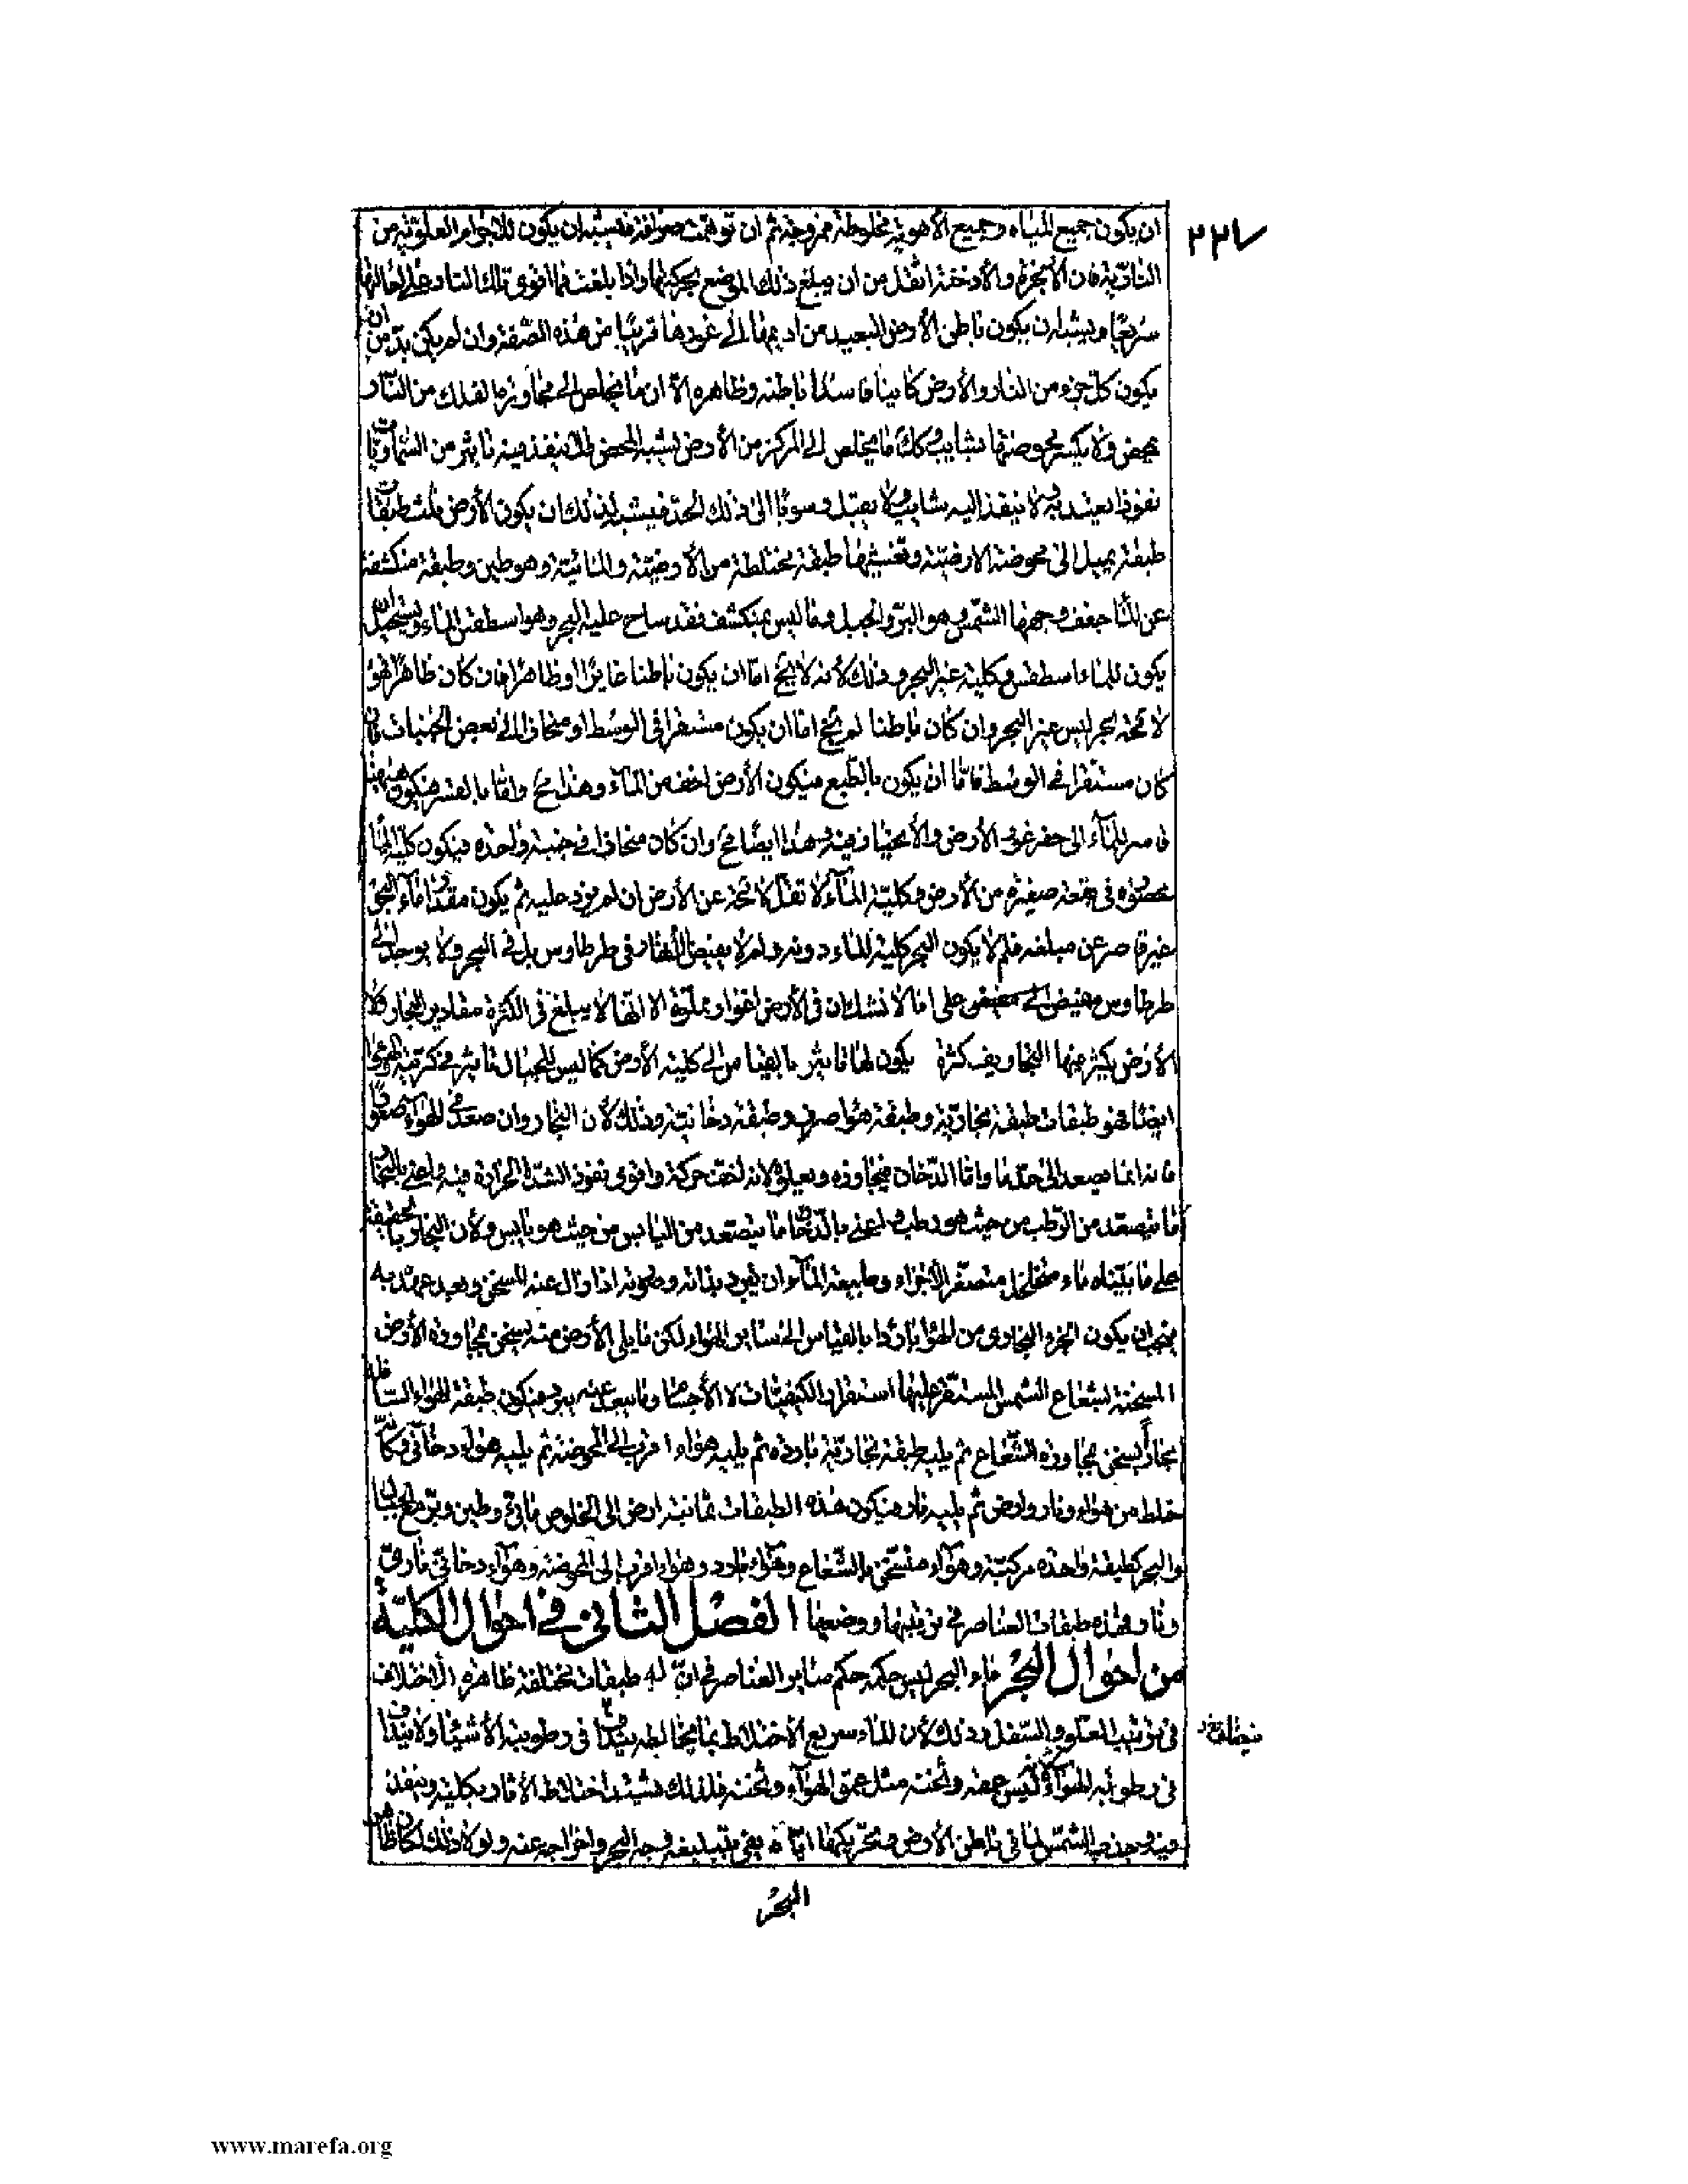 ٢٢٧
ان يكون جميع المياه وجميع الأهوية مخلوطة ممزوجة ثم ان توهمت صرافة فيشبه ان يكون للاجرام العلوية من
النارية فان الأبخرة والأدخنة اثقل من ان يبلغ ذلك الموضع بحركتها واذا بلغت فما اقوى تلك النار على احالتها
سريعا ويشبه ان يكون باطن الأرض البعيد من اديمها الى غورها قريبا من هذه الصفة وان لم يكن بد من ان
يكون كل جزء من النار والأرض كاينا فاسدا باطنه وظاهره الا ان ما يخلص الى مجاورة الفلك من النار
يمحض ولا يكسر محوضتها بشايب وكك ما يخلص الى المركز من الأرض يشبه المحض فلا ينفذ فيه تاثير من السماويات
نفوذا يعتد به ولا ينفذ اليه شايب ولا يقبل رسوبا الى ذلك الحد فيشبه لذلك ان يكون الأرض ثلث طبقات
طبقة يميل الى محوضة الارضية وتغشيها طبقة مختلطة من الأرضية والمائية وهو طين وطبقة منكشفة
عن الماء جفف وجهها الشمس وهو البر والجبل وما ليس بمنكشف فقد ساح عليه البحر وهو اسطقس الماء ويستحيل ان
يكون للماء اسطقس وكلية غير البحر وذلك لأنه لا يخ اما ان يكون باطنا غايرا او ظاهرا فان كان ظاهرا فهو
لا محة بحر ليس غير البحر وان كان باطنا لم يخ اما ان يكون مستقرا في الوسط او منحازا الى بعض الجنبات فان
كان مستقرا في الوسط فاما ان يكون بالطبع فيكون الأرض اخف من الماء وهذا مح واما بالقسر فيكون ههنا
قاسر للماء الى حفر غور الأرض والأنحياز فيه وهذا ايضا مح وان كان منحازا في جنبة واحدة فيكون كلية الماء
محصورة في بقعة صغيرة من الأرض وكلية الماء لا تقل لا محة عن الأرض ان لم يزد عليه ثم يكون مقدار ماء البحر
غير قاصر عن مبلغه فلم لا يكون البحر كلية الماء دونه ولم لا يفيض الأنهار في طرطاوس بل في البحر ولا يوجد الى
طرطاوس مفيض على انا لا نشك ان في الأرض اغوارا مملوة الا انها لا يبلغ في الكثرة مقادير البحار ولا
الأرض يكثر فيها التجاويف كثرة يكون لها تاثير بالقياس الى كلية الأرض كما ليس للجبال تاثير في كريته والهواء
ايضا فهو طبقات طبقة بخارية وطبقة هواء صرف وطبقة دخانية وذلك لأن البخار وان صعد في الهواء صعودا
فانه انما يصعد الى حد ما واما الدخان فيجاوزه ويعلوه لانه اخف حركة واقوى نفوذا لشدة الحرارة فيه واعني بالبخار
ما يتصعد من الرطب من حيث هو رطب واعني بالدخان ما يتصعد من اليابس من حيث هو يابس ولأن البخار بالحقيقة
على ما بيناه ماء متخلخل متصغر الأجزاء وطبيعة الماء ان يبرد بذاته ومن صورته اذا زال عنه المسخن وبعد عهده به
فيجب ان يكون الجزء البخاري من الهواء باردا بالقياس الى ساير الهواء لكن ما يلي الأرض منه يسخن بمجاورة الأرض
المسخنة بشعاع الشمس المستقر عليها استقرار الكيفيات لا الأجسام وما يبعد عنه يبرد فيكون طبقة الهواء السافلة
بخارا يسخن بمجاورة الشعاع ثم يليه طبقة بخارية باردة ثم يليه هواء اقرب الى المحوضة ثم يليه هواء دخاني وكانه
خلط من هواء ونار وارض ثم يليه نار فيكون هذه الطبقات ثمانية ارض الى الخلوص ما هي وطين وبر مع الجبال
والبحر كطبقة واحدة مركبة وهواء متسخن بالشعاع وهواء بارد وهواء اقرب الى المحوضة وهواء دخاني ناري
ونار فهذه طبقات العناصر في ترتيبها ووضعها الفصل الثاني في احوال الكلية
من احوال البحر ماء البحر ليس حكمه حكم ساير العناصر في ان له طبقات مختلفة ظاهرة الأختلاف
في ترتيب العلو والسفل وذلك لأن الماء سريع الأختلاط بما يخالطه في رطوبة الأشياء ولا
في رطوبة الهواء وليس عمقه وثخنه مثل عمق الهواء وثخنه فلذلك يشتد اختلاط الآثار بكليته وينفذ
فيه وجذب الشمس لما في باطن الأرض وتحريكها اياه يفي بتبليغه وجه البحر واخراجه عنه ولولا ذلك لكان ظاهر
البحر
www.marefa.org